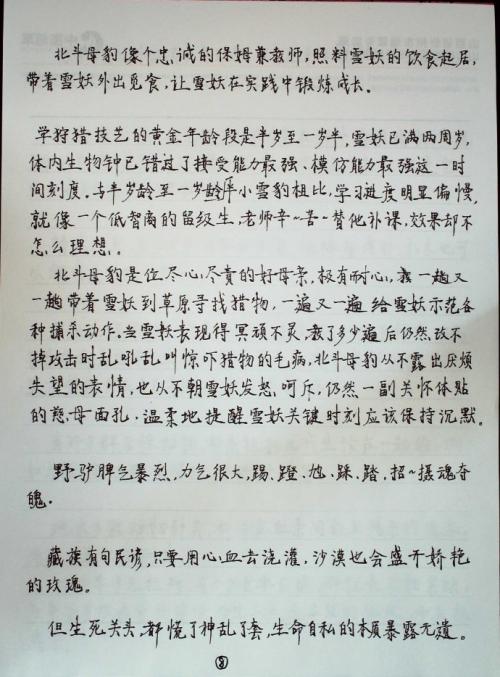 北斗母豹像个忠诚的保姆兼教师，照料雪妖的饮食起居，
带着雪妖外出觅食，让雪妖在实践中锻炼成长。
学狩猎技艺的黄金年龄段是半岁至一岁半，雪妖已满两周岁，
体内生物钟已错过了接受能力最强、模仿能力最强这一时
间刻度。与半岁龄至一岁龄小雪豹相比，学习进度明显偏慢，
就像一个低智商的留级生，老师辛~苦~替他补课，效果却不
怎么理想。
北斗母豹是位尽心尽责的好母亲，极有耐心，一趟又
一趟带着雪妖到草原寻找猎物，一遍又一遍给雪妖示范各
种捕杀动作。当雪妖表现得冥顽不灵，教了多少遍后仍然改不
掉攻击时乱吼乱叫惊吓猎物的毛病，北斗母豹从不露出厌烦
失望的表情，也从不朝雪妖发怒、呵斥，仍然一副关怀体贴
的慈母面孔，温柔地提醒雪妖关键时刻应该保持沉默。
野驴脾气暴烈，力气很大，踢、蹬、尥、跺、踏，招~摄魂夺
魄。
藏族有句民谚，只要用心血去浇灌，沙漠也会盛开娇艳
的玫瑰。
但生死关头，都慌了神乱了套，生命自私的本质暴露无遗。
⑧